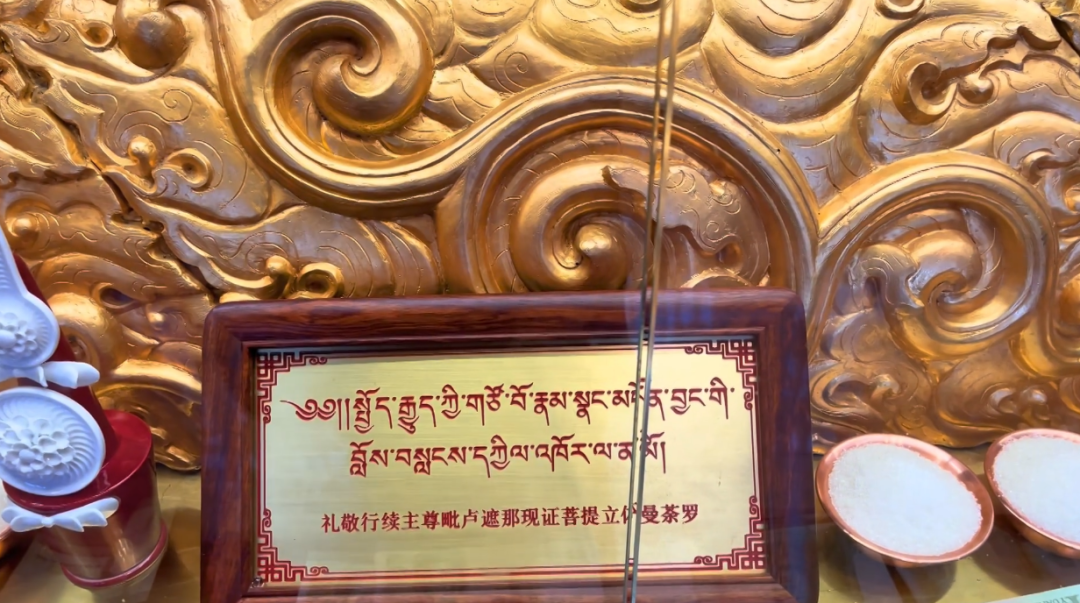 ༄༅།།སྤྱོད་རྒྱུད་ཀྱི་གཙོ་བོ་རྣམ་སྣང་མངོན་བྱང་གི་
བློས་བསླངས་དཀྱིལ་འཁོར་ལ་ན་མོ།
礼敬行续主尊毗卢遮那现证菩提立体曼荼罗